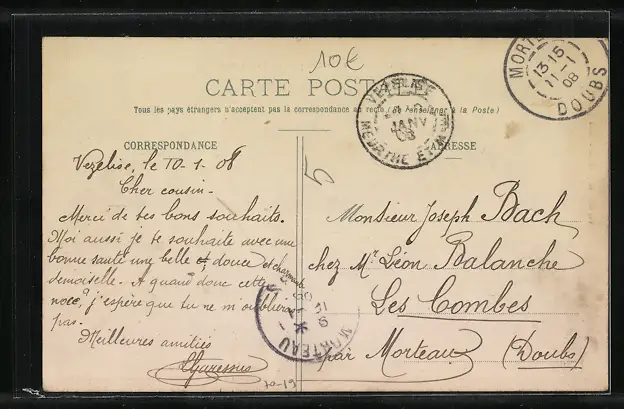 10€
CARTE POSTALE
Tous les pays étrangers n'acceptent pas la correspondance au recto (se renseigner à la Poste)
CORRESPONDANCE
ADRESSE
VEZELISE
JANV
08
MEURTHE ET M
MORTEAU
13-15
11-1
08
DOUBS
5
Vezelise, le 10-1-08
Cher cousin-
Merci de tes bons souhaits.
Moi aussi je te souhaite avec une
bonne santé une belle et, douce et charmante
demoiselle. A quand donc cette
noce? j'espère que tu ne m'oublieras
pas.
Meilleures amitiés
Monsieur Joseph Bach
chez Mr. Léon Balanche
Les Combes
par Morteau (Doubs)
MORTEAU